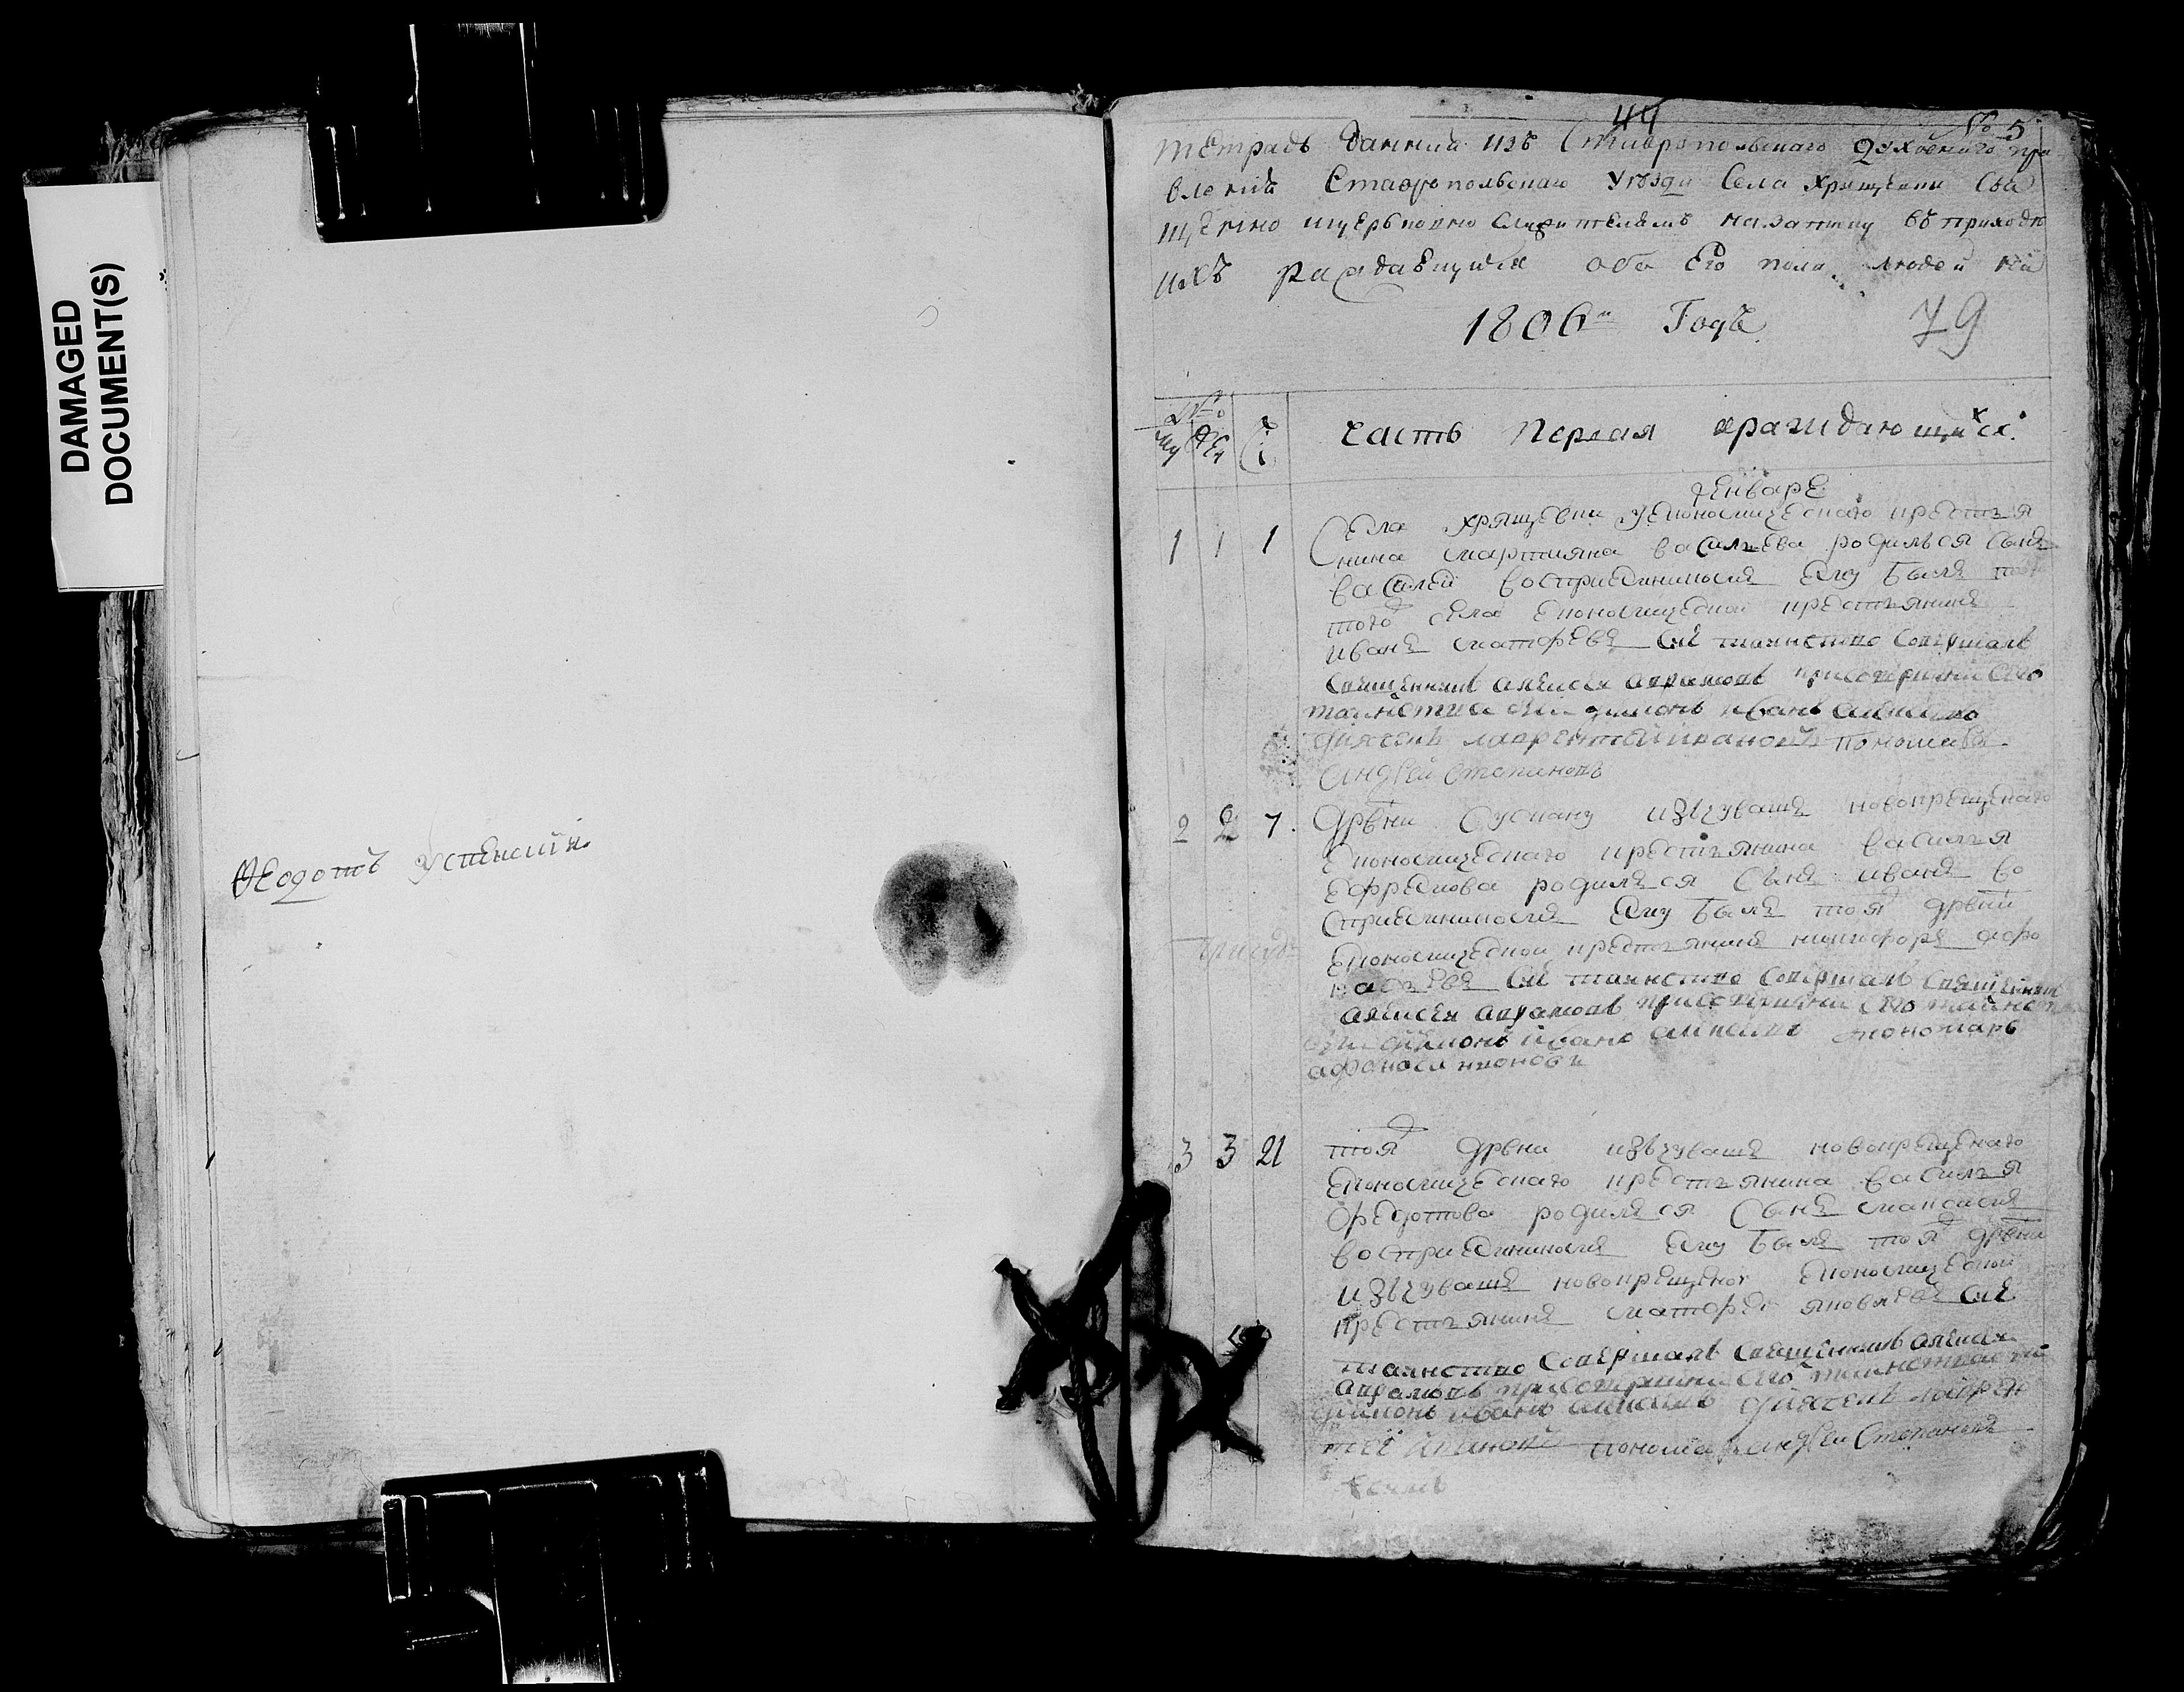 DAMAGED
DOCUMENT(S)
Феодотъ Успенскій
44
№ 5
Тетрадь данная изъ Ставропольскаго Духовнаго пра
вленія Ставропольскаго уѣзда Села Хрящевки Свя
щенно церьковно служителямъ на записку въ приходѣ
ихъ раждающихся обо его пола людей на
1806й Годъ
79
№
му же Чи
Часть Первая ораждающихся
генваре
1 1 1 Села Хрящевки Економическаго крестья
нина мартияна васильева родился Сынъ
василей восприемникомъ Ему былъ
того села Економической крестьянинъ
иванъ матфеевъ Сие таинство Совершалъ
Священникъ алексей аврамовъ при совершении сего
таинства были диаконъ иванъ алексеевъ
дьячекъ лаврентей ивановъ пономарь
андрей степановъ
2 2 7 Дрвни Сускану изъ чувашъ новокрещенаго
Економическаго крестьянина василья
ефремова родился Сынъ иванъ во
сприемникомъ Ему былъ тоя дрвни
Економической крестьянинъ никифоръ афо
насьевъ Сие таинство Совершалъ Священникъ
алексей аврамовъ при совершении сего таинства
были диаконъ иванъ алексеевъ пономарь
3 3 21 тоя дрвни изъ чувашъ новокрещенаго
Економическаго крестьянина василья
Федотова родился Сынъ
восприемникомъ Ему былъ тоя дрвни
изъ чувашъ новокрещеной Економической
крестьянинъ матфей яковлевъ Сие
таинство Совершалъ Священникъ алексей
аврамовъ при совершении сего таинства
диаконъ иванъ алексеевъ дьячекъ лаврен
тей ивановъ пономарь андрей Степановъ